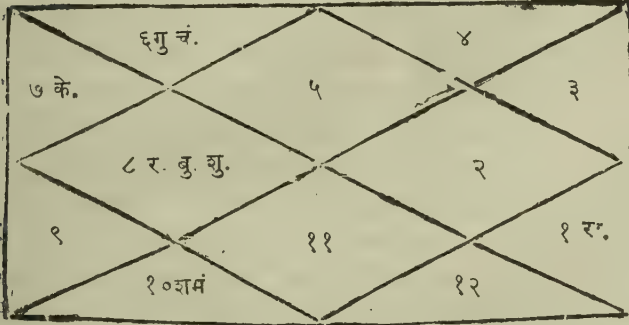 ६गु चं.
४
७ के.
५
३
८ र. बु. शु.
२
९
११
१ रा.
१०शमं
१२